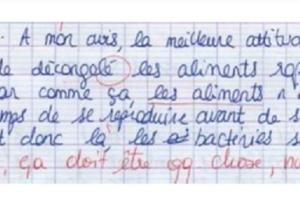 . A mon avis, la meilleure attitu
de décongelé les aliments ra
ar comme ça, les aliments n
mps de se reproduire avant de s
t donc là, les bactéries s
, ça doit être qq chose,